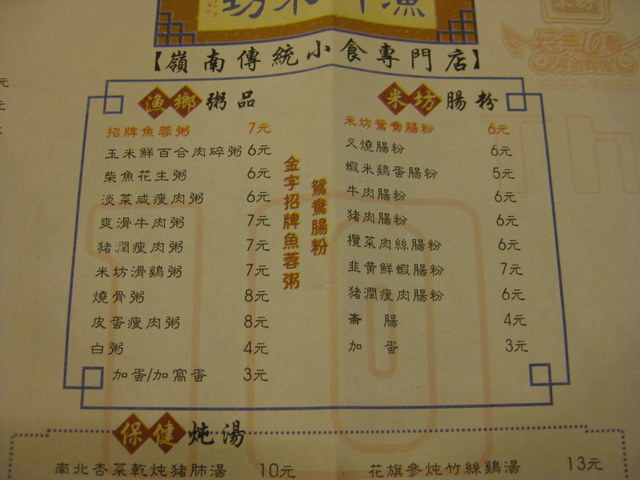 【嶺南傳統小食專門店】
漁鄉粥品
招牌魚蓉粥 7元
玉米鮮百合肉碎粥 6元
柴魚花生粥 6元
淡菜咸瘦肉粥 6元
爽滑牛肉粥 7元
豬潤瘦肉粥 7元
米坊滑鷄粥 7元
燒骨粥 8元
皮蛋瘦肉粥 8元
白粥 4元
加蛋/加窩蛋 3元
鴛鴦腸粉
金字招牌魚蓉粥
米坊腸粉
米坊鴛鴦腸粉 6元
叉燒腸粉 6元
蝦米鷄蛋腸粉 5元
牛肉腸粉 6元
豬肉腸粉 6元
欖菜肉絲腸粉 6元
韭黃鮮蝦腸粉 7元
豬潤瘦肉腸粉 6元
齋腸 4元
加蛋 3元
保健炖湯
南北杏菜乾炖豬肺湯 10元
花旗參炖竹絲鷄湯 13元